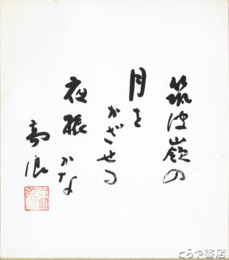 筑波嶺の
月を
かざせる
夜振かな
とらや書店